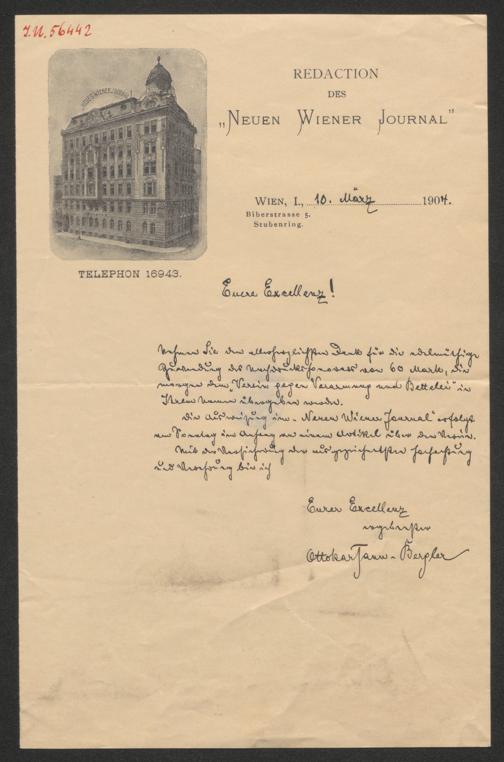 J.N. 56442
NEUES WIENER JOURNAL
REDACTION
DES
„NEUEN WIENER JOURNAL"
WIEN, I., 10. März 1904.
Biberstrasse 5.
Stubenring.
TELEPHON 16943.
Euere Excellenz!
Nehmen Sie den allerherzlichsten Dank für die edelmüthige
Zuwendung des Nachdruckshonorars von 60 Mark, die
morgen dem „Verein gegen Verarmung und Bettelei" in
Ihrem Namen übergeben werden.
Die Ausweisung im „Neuen Wiener Journal" erfolgt
am Sonntag im Anhang an einen Artikel über den Verein.
Mit der Versicherung der ausgezeichnetsten Hochachtung
und Verehrung bin ich
Eurer Excellenz
ergebenster
Ottokar Tann-Bergler